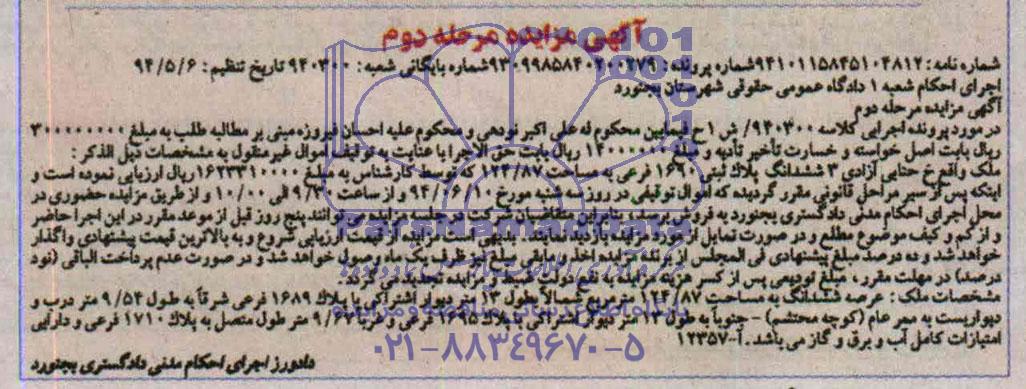 آگهی مزایده مرحله دوم
شماره نامه: ۹۴۱۰۱۱۵۸۴۵۱۰۴۸۱۲ شماره پرونده: ۹۳۰۹۹۸۵۸۴۰۲۰۰۲۷۹ شماره بایگانی شعبه: ۹۴۰۳۰۰ تاریخ تنظیم: ۹۴/۵/۶
اجرای احکام شعبه ۱ دادگاه عمومی حقوقی شهرستان بجنورد
آگهی مزایده مرحله دوم
در مورد پرونده اجرایی کلاسه ۹۴۰۳۰۰/ش ۱ ح فیمابین محکوم له علی اکبر نودهی و محکوم علیه احسان فیروزه مبنی بر مطالبه طلب به مبلغ ۳۰۰۰۰۰۰۰۰
ریال بابت اصل خواسته و خسارت تأخیر تأدیه و مبلغ ۱۴۰۰۰۰۰۰ ریال بابت حق الاجرا با عنایت به توقیف اموال غیر منقول به مشخصات ذیل الذکر:
ملک واقع خ حنایی آزادی ۳ ششدانگ پلاک ثبتی ۱۶۹۰ فرعی به مساحت ۱۲۴/۸۷ که توسط کارشناس به مبلغ ۱۶۲۳۳۱۰۰۰۰ ریال ارزیابی نموده است و
اینکه پس از سیر مراحل قانونی مقرر گردیده که اموال توقیفی در روز سه شنبه مورخ ۹۴/۰۶/۱۰ و از ساعت ۹/۳۰ الی ۱۰/۰۰ و از طریق مزایده حضوری در
محل اجرای احکام مدنی دادگستری بجنورد به فروش برسد، بنابراین متقاضیان شرکت در جلسه مزایده می توانند پنج روز قبل از موعد مقرر در این اجرا حاضر
و از کم و کیف موضوع مطلع و در صورت تمایل از مورد مزایده بازدید نمایند. بدیهی است مزایده از قیمت ارزیابی شروع و به بالاترین قیمت پیشنهادی واگذار
خواهد شد و ده درصد مبلغ پیشنهادی فی المجلس از برنده مزایده اخذ و مابقی مبلغ در ظرف یک ماه وصول خواهد شد و در صورت عدم پرداخت الباقی (نود
درصد) در مهلت مقرر، مبلغ تودیعی پس از کسر هزینه مزایده به نفع دولت ضبط و مزایده تجدید می گردد.
مشخصات ملک: عرصه ششدانگ به مساحت ۱۲۴/۸۷ مترمربع شمالاً بطول ۱۳ متر دیوار اشتراکی با پلاک ۱۶۸۹ فرعی شرقاً به طول ۹/۵۴ متر درب و
دیواریست به ممر عام (کوچه محتشم) - جنوباً به طول ۱۳ متر دیوار اشتراکی با پلاک ۱۶۹۵ فرعی و غرباً ۹/۶۲ متر طول متصل به پلاک ۱۷۱۰ فرعی و دارای
امتیازات کامل آب و برق و گاز می باشد. آ-۱۲۳۵۷
دادورز اجرای احکام مدنی دادگستری بجنورد
ParsNamadData
پایگاه اطلاع رسانی مناقصه و مزایده
۰۲۱-۸۸۳۴۹۶۷۰-۵